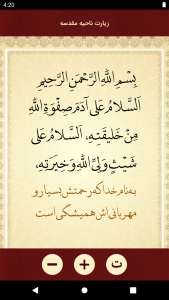 4:20
زیارت ناحیه مقدسه
بِسْمِ اللهِ الرَّحْمنِ الرَّحِیمِ
اَلسَّلامُ عَلى آدَمَ صِفْوَةِ اللهِ
مِنْ خَلیقَتِهِ، اَلسَّلامُ عَلى
شَیْث وَلِىِّ اللهِ وَ خِیَرَتِهِ،
به نام خدا که رحمتش بسیار و
مهربانی اش همیشگی است
− + ت